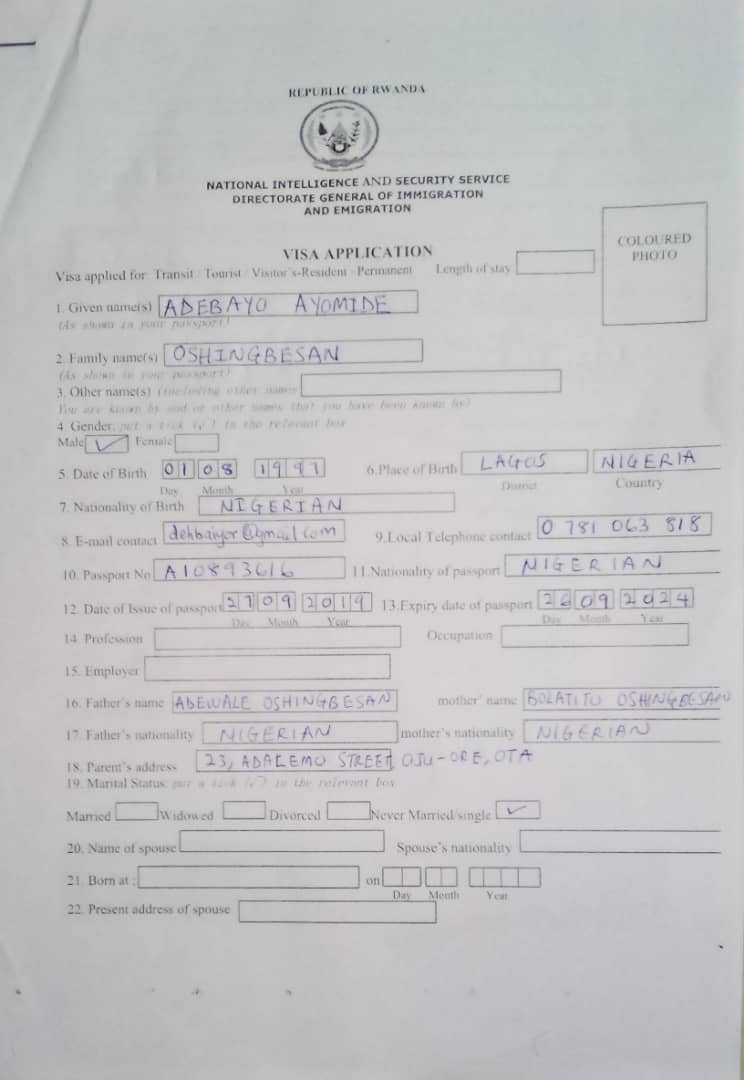 REPUBLIC OF RWANDA
NATIONAL INTELLIGENCE AND SECURITY SERVICE
DIRECTORATE GENERAL OF IMMIGRATION
AND EMIGRATION
COLOURED
PHOTO
VISA APPLICATION
Visa applied for: Transit / Tourist / Visitor's-Resident -Permanent Length of stay
1. Given name(s) ADEBAYO AYOMIDE
(As shown in your passport)
2. Family name(s) OSHINGBESAN
(As shown in your passport)
3. Other name(s) (including other names
You are known by and or other names that you have been known by)
4. Gender: put a tick (√) in the relevant box
Male ✓ Female
5. Date of Birth 01 08 1997 6.Place of Birth LAGOS NIGERIA
Day Month Year District Country
7. Nationality of Birth NIGERIAN
8. E-mail contact dehbaiyor@gmail.com 9.Local Telephone contact 0 781 063 818
10. Passport No A10893616 11.Nationality of passport NIGERIAN
12. Date of Issue of passport 27 09 2019 13.Expiry date of passport 26 09 2024
Day Month Year Day Month Year
14. Profession Occupation
15. Employer
16. Father's name ADEWALE OSHINGBESAN mother' name BOLATITU OSHINGBESAN
17. Father's nationality NIGERIAN mother's nationality NIGERIAN
18. Parent's address 23, ADALEMO STREET, OJU-ORE, OTA
19. Marital Status: put a tick (√) in the relevant box
Married Widowed Divorced Never Married/single ✓
20. Name of spouse Spouse's nationality
21. Born at : on
Day Month Year
22. Present address of spouse